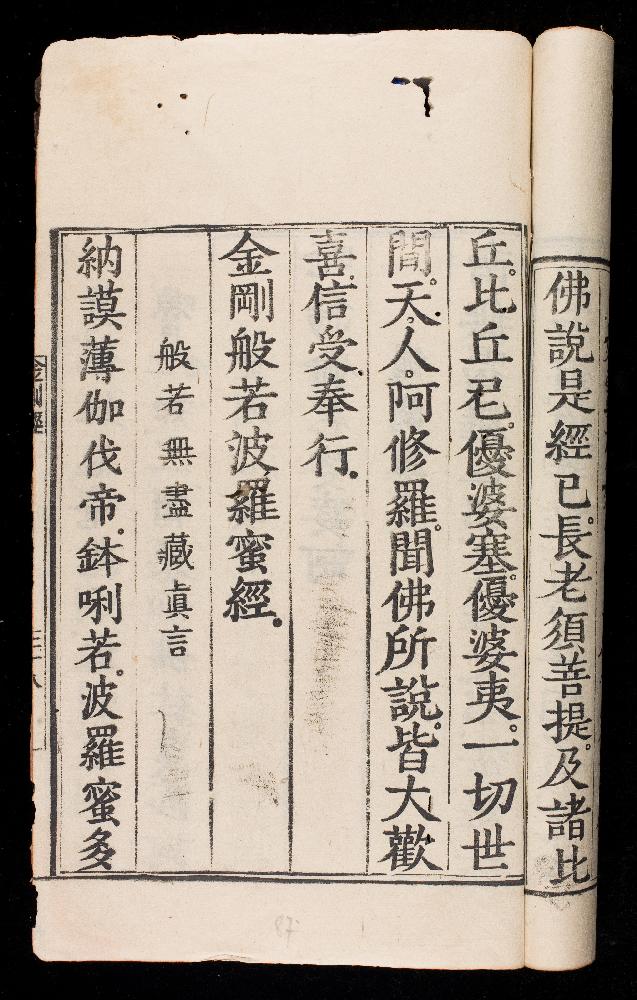 佛說是經已。長老須菩提。及諸比
丘。比丘尼。優婆塞。優婆夷。一切世
間。天。人。阿修羅。聞佛所說。皆大歡
喜。信受奉行。
金剛般若波羅蜜經。
般若無盡藏眞言
納謨薄伽伐帝。鉢唎若。波羅蜜多
金剛經